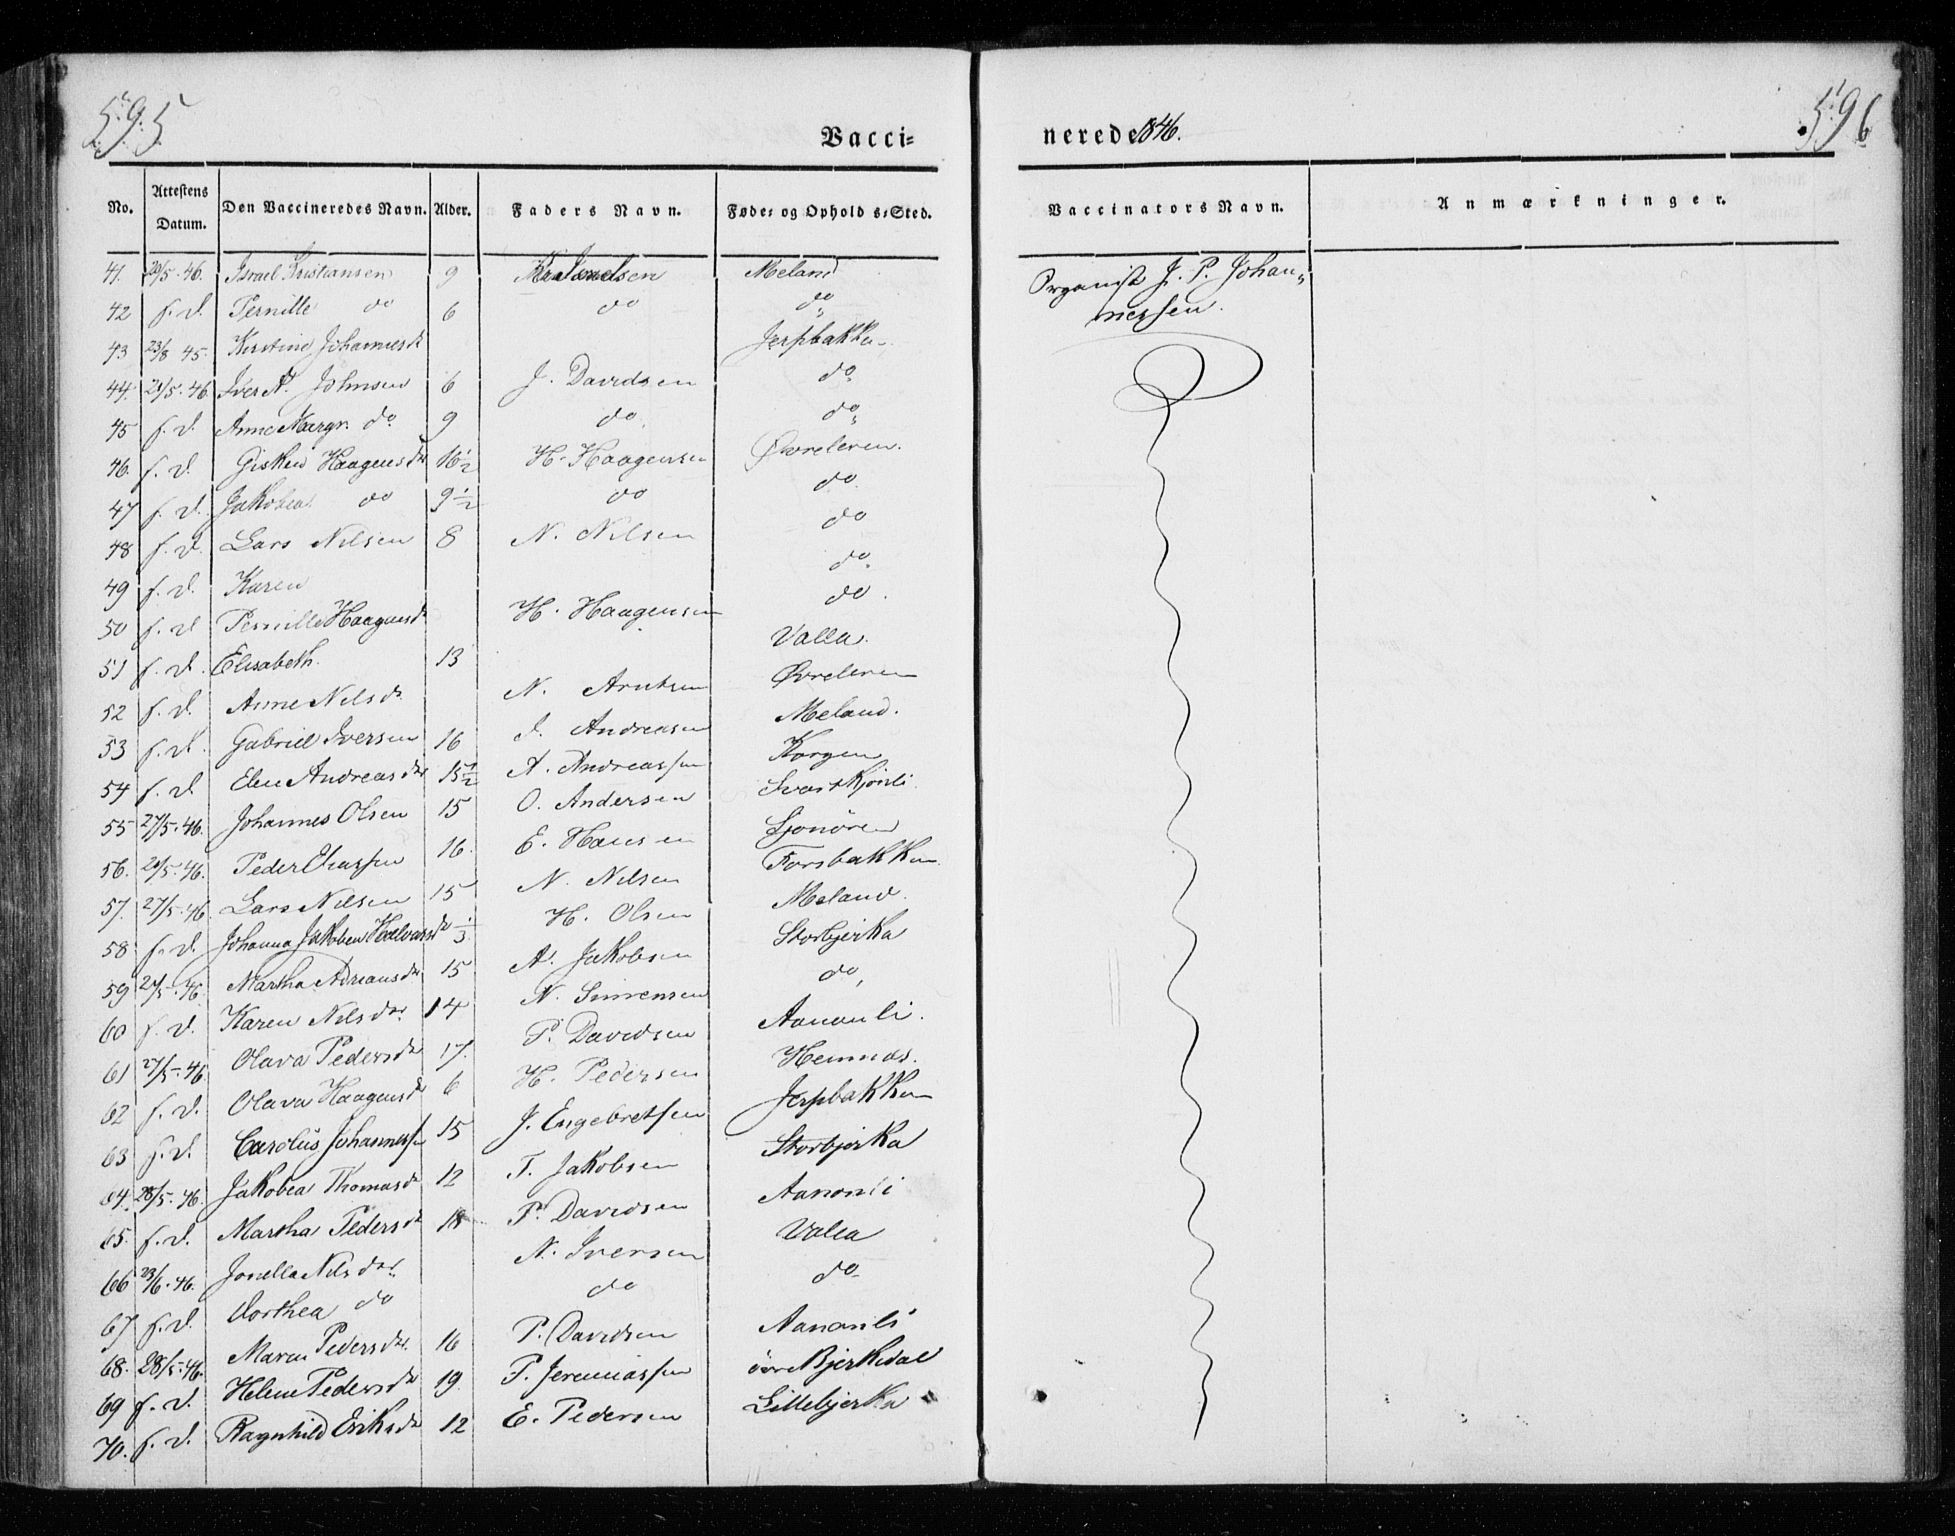 595
Vacci=
nerede 1846.
596
No. Attestens Datum. Den Vaccineredes Navn. Alder. Faders Navn. Føde= og Opholds=Sted. Vaccinators Navn. Anmærkninger.
41. 20/5. 46. Israel Kristiansen 9 Meland Organist J. P. Johan„
42 f. d. Pernille do 6 do do„ nessen.
43 23/8 45. Kirstine Johannesdr Jerpbakka
44. 20/5. 46. Iver A. Johnsen 6 J. Davidsen do
45 f. d. Anne Margr. do 9 do. do„
46. f. d. Gisken Haagensdr 16½ H. Haagensen Øvreleren.
47 f. d. Jakobea do 9½ do do.
48 f. d. Lars Nilsen 8 N. Nilsen do
49 f. d. Karen do.
50 f. d Pernille Haagensdr H. Haagensen do.
51 f. d. Elisabeth. 13 Valla.
52 f. d. Anne Nilsdr N. Arntsen Øvreleren
53 f. d. Gabriel Iversen 16 I. Andreasen Meland.
54 f. d Elen Andreasdr 15½ A. Andreassen Korgen
55 27/5. 46. Johannes Olsen 15 O. Andersen Svartkjønli
56. 20/5. 46. Peder Eliassen 16. E. Hansen Sjonøren
57. 27/5. 46. Lars Nilsen 15 N. Nilsen Forsbakken.
58 f. d. Johanna Jakobea Halvorsdr 1/3 H. Olsen Meland.
59 27/5. 46. Martha Adriansdr 15 A. Jakobsen Storbjerka
60 f. d. Karen Nilsdr 14 N. Simensen do,
61 27/5. 46. Olava Pedersdr 17. P. Davidsen Aanonli.
62 f. d. Olava Haagensdr 6 H. Pedersen Hemnæs.
63 f. d. Carolius Johannessen 15 J. Engebretsen Jerpbakken
64. 28/5. 46. Jakobea Thomasdr 12 T. Jakobsen Storbjerka
65. f. d. Martha Pedersdr 18 P. Davidsen Aanonli
66 23/6. 46. Jonella Nilsdr. N. Iversen Valla
67 f. d. Dorthea do do do
68. 28/5. 46. Maren Pedersdr. 16 P. Davidsen Aanonli
69 f. d. Helene Pedersdr 19 P. Jeremiassen øvre Bjerkedal
70. f. d. Ragnhild Eriksdr 12 E. Pedersen Lillebjerka